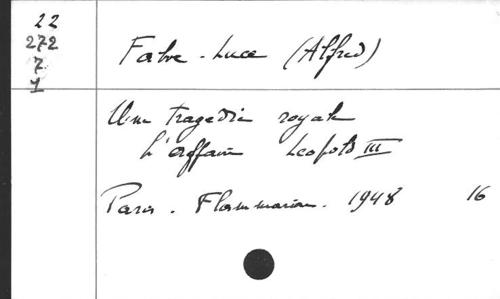 22
272
7
1
Fabre-Luce (Alfred)
Une tragédie royale
L'affaire Léopold III
Paris. Flammarion. 1948 16